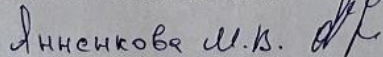 Анненкова М.В.